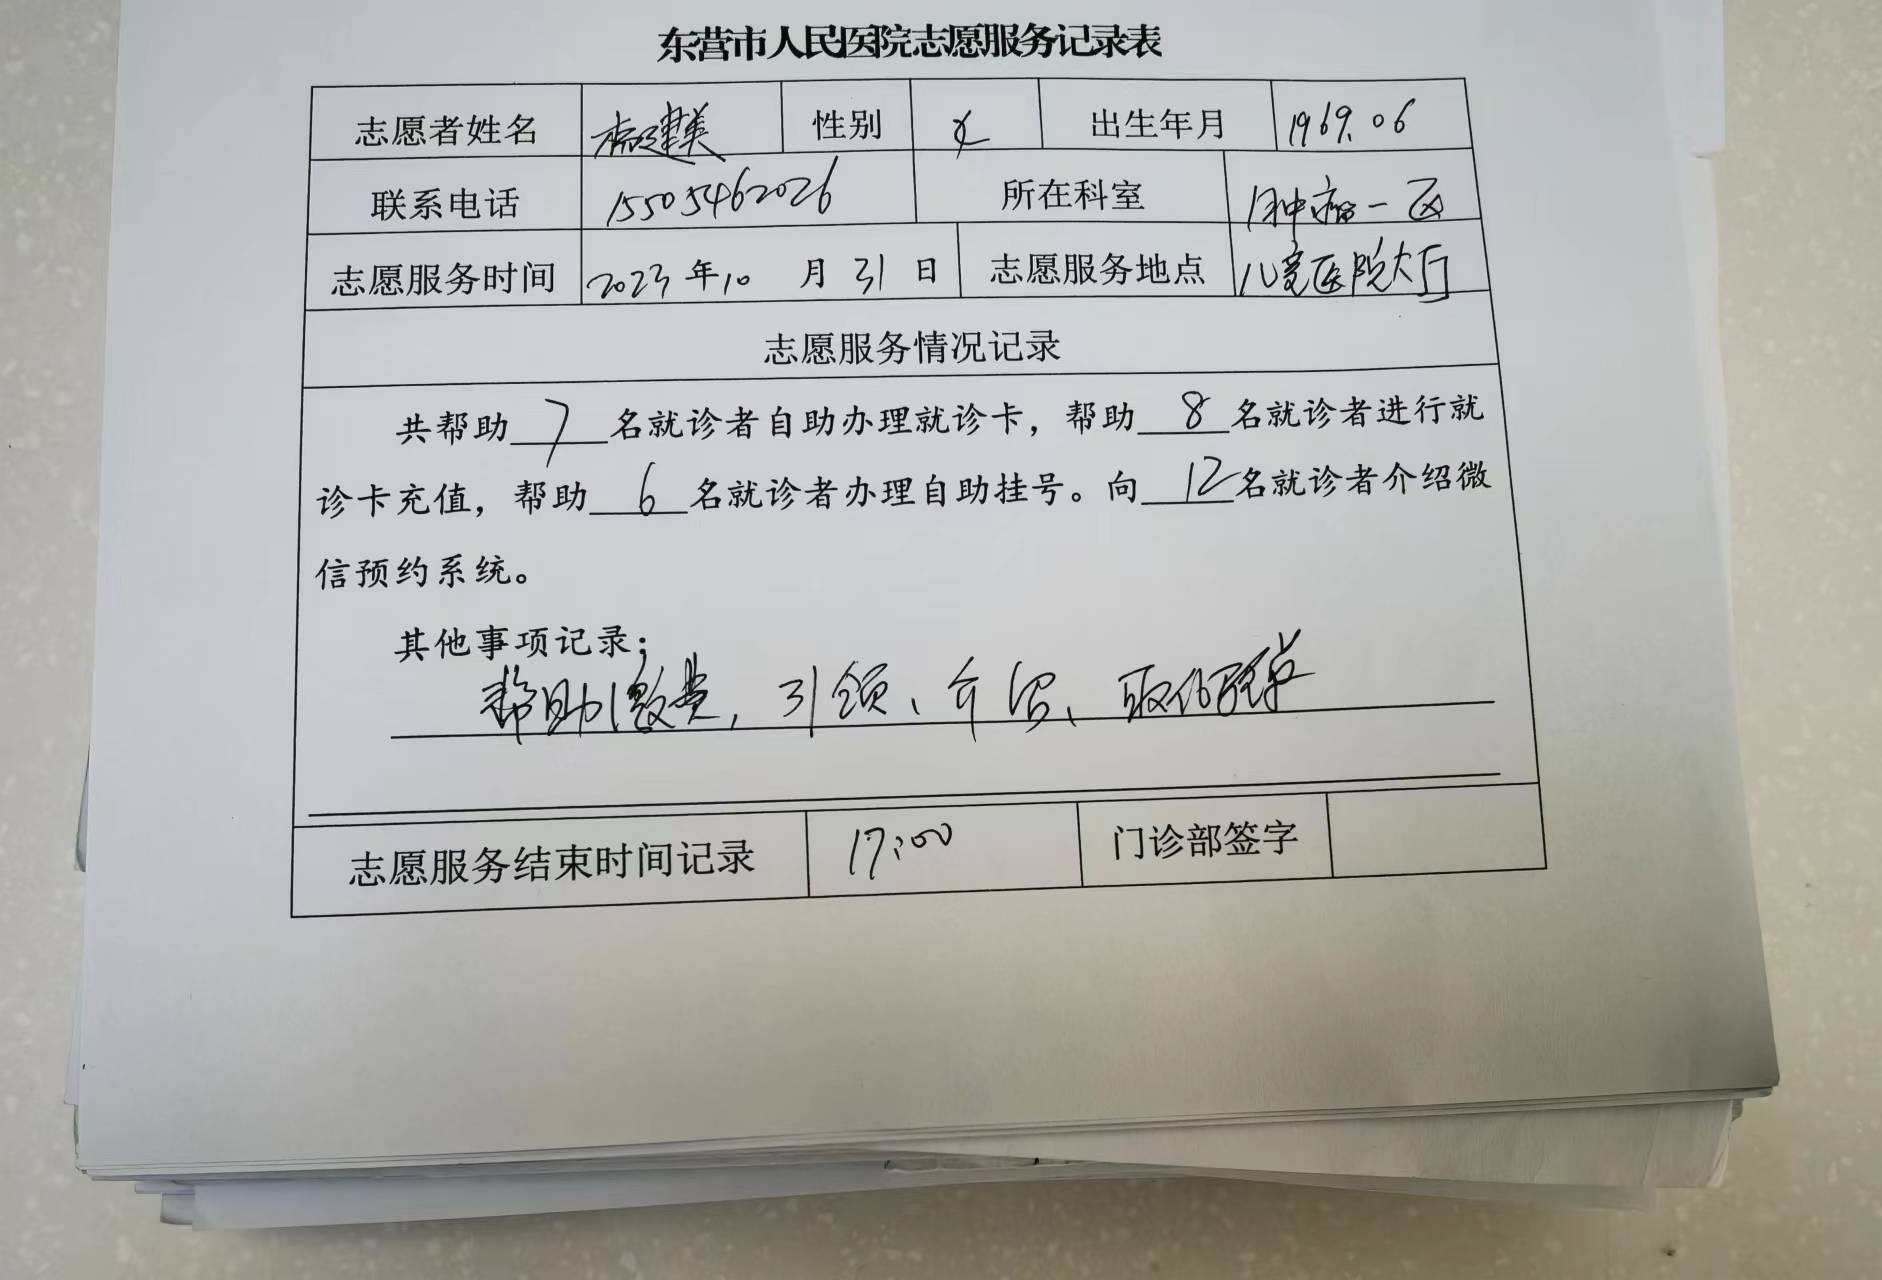 东营市人民医院志愿服务记录表
志愿者姓名 建美 性别 女 出生年月 1969.06
联系电话 15505462026 所在科室 肿瘤一区
志愿服务时间 2023年10月31日 志愿服务地点 儿童医院大厅
志愿服务情况记录
共帮助7名就诊者自助办理就诊卡，帮助8名就诊者进行就
诊卡充值，帮助6名就诊者办理自助挂号。向12名就诊者介绍微
信预约系统。
其他事项记录；
帮助缴费，引领、介绍、取化验单
志愿服务结束时间记录 17:00 门诊部签字